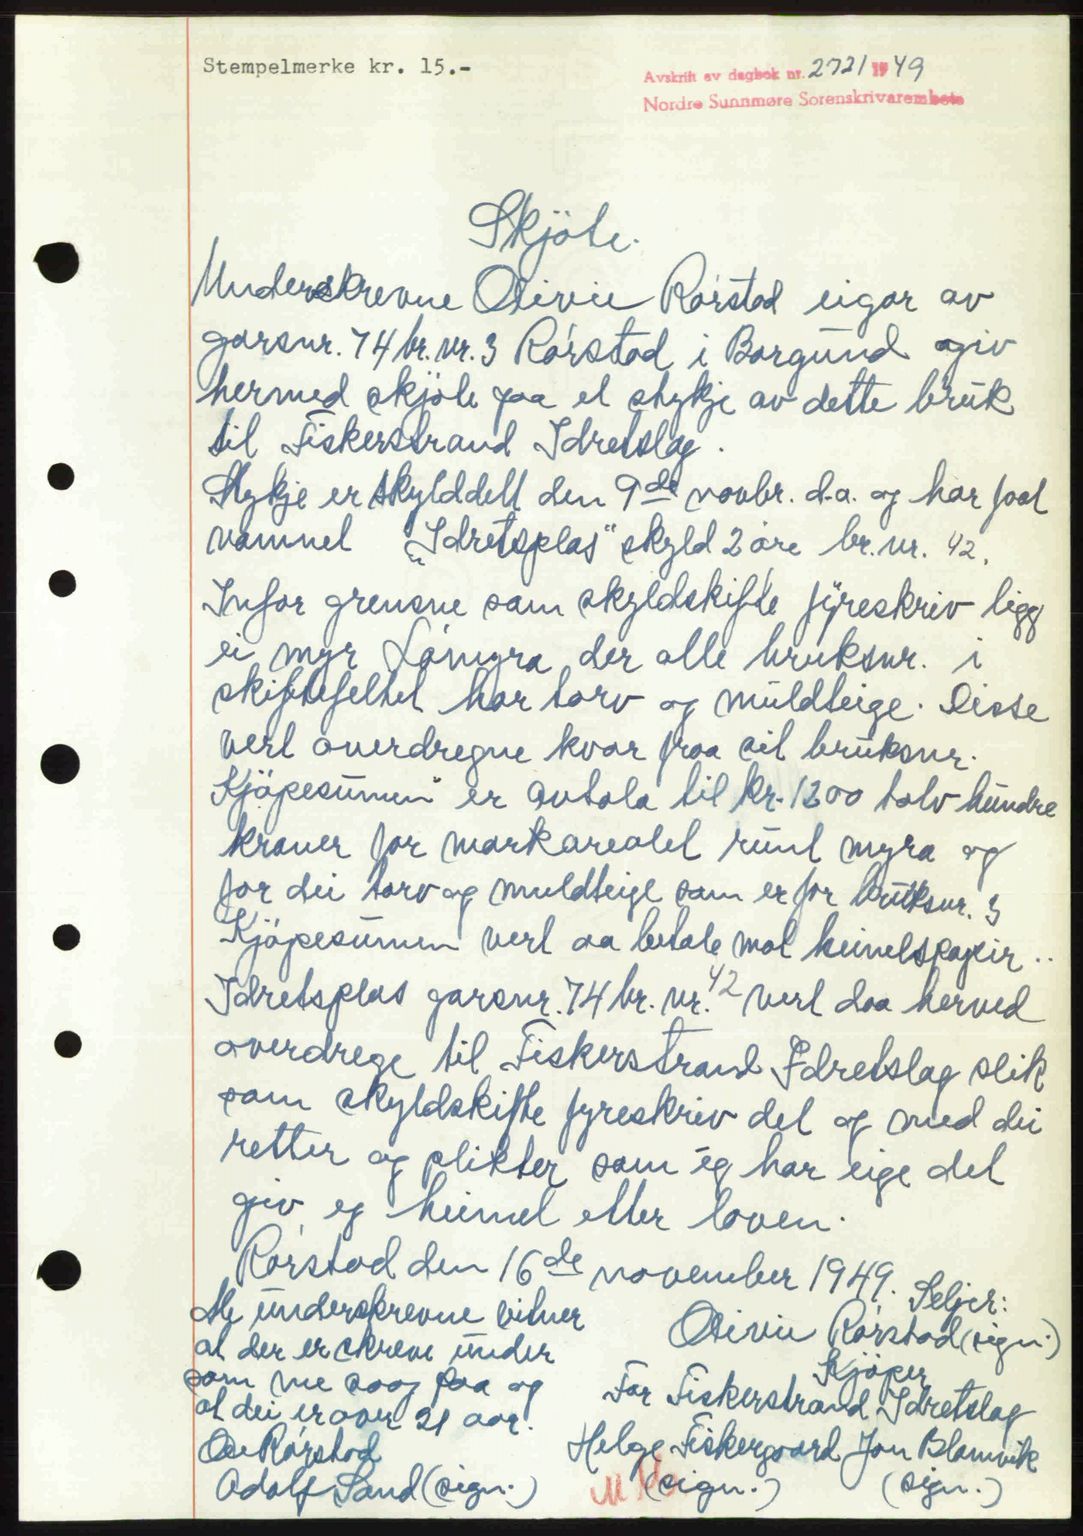 Stempelmerke kr. 15.-
Avskrift av dagbok nr. 2721 1949
Nordre Sunnmøre Sorenskrivarembete
Skjöte.
Underskrevne Olivie Rørstad eigar av
garsnr. 74 br. nr. 3 Rørstad i Borgund giv
hermed skjöte paa et stykje av dette bruk
til Fiskerstrand Idretslag.
Stykje er skylddelt den 9de novbr. d.a. og har faat
namnet "Idretsplas" skyld 2 øre br. nr. 42.
Infor grensne som skyldskifte fyreskriv ligg
ei myr Lømyra der alle bruksnr. i
skiftefeltet har torv og muldteige. Disse
vert overdregne kvar fraa sit bruksnr.
Kjöpesumen er avtala til kr. 1200 tolv hundre
kroner for markarealet runt myra og
for dei torv og muldteige som er for bruksnr. 3
Kjöpesumen vert aa betale mot heimelspapir..
Idretsplas garsnr. 74 br. nr. 42 vert daa herved
overdrege til Fiskerstrand Idretslag slik
som skyldskifte fyreskriv det og med dei
retter og plikter som eg har eige det
giv eg heimel etter loven.
Rørstad den 16de november 1949.
Me underskrevne vitner
at der er skreve under
som me saag paa og
at dei er over 21 aar.
Rørstad
Adolf Sand (sign.)
Seljer:
Olivie Rørstad (sign.)
Kjöper
For Fiskerstrand Idretslag
Helge Fiskergaard Jon Blomvik
(sign.) (sign.)